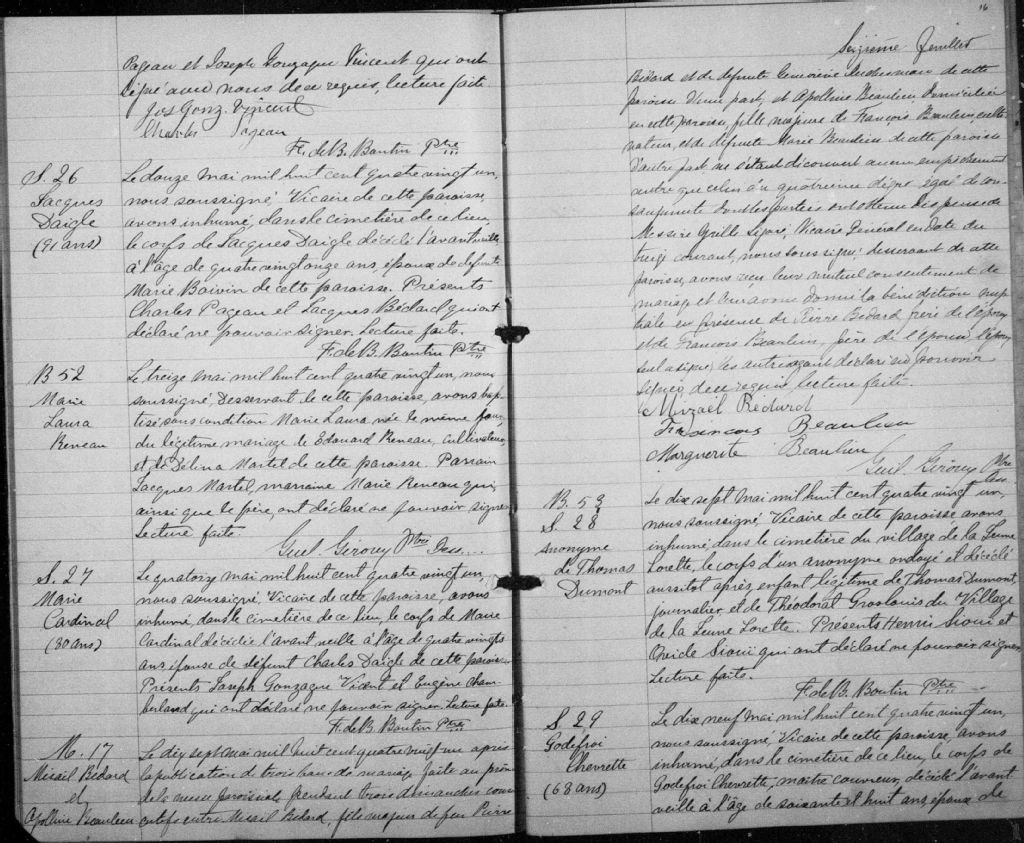 Pageau et Joseph Gonzague Vincent qui ont
signé avec nous de ce requis, lecture faite
Jos Gonz. Vincent
Charles Pageau
F. de B. Boutin Ptre
S. 26
Jacques
Daigle
(91 ans)
Le douze mai mil huit cent quatre vingt un,
nous soussigné, Vicaire de cette paroisse,
avons inhumé, dans le cimetière de ce lieu,
le corps de Jacques Daigle décédé l'avant veille
à l'âge de quatre vingt onze ans, époux de défunte
Marie Boivin de cette paroisse. Présents
Charles Pageau et Jacques Bédard qui ont
déclaré ne pouvoir signer. Lecture faite.
F. de B. Boutin Ptre
B 52
Marie
Laura
Reneau
Le treize mai mil huit cent quatre vingt un, nous
soussigné Desservant de cette paroisse, avons bap
tisé sous condition Marie Laura née le même jour,
du légitime mariage de Edouard Reneau, cultivateur
et de Délina Martel de cette paroisse. Parrain
Jacques Martel, marraine Marie Reneau qui,
ainsi que le père, ont déclaré ne pouvoir signer
Lecture faite.
Guil. Giroux Ptre Dess.
S. 27
Marie
Cardinal
(80 ans)
Le quatorze mai mil huit cent quatre vingt un,
nous soussigné, Vicaire de cette paroisse, avons
inhumé, dans le cimetière de ce lieu, le corps de Marie
Cardinal décédée l'avant veille à l'âge de quatre vingts
ans épouse de défunt Charles Daigle de cette paroisse.
Présents Joseph Gonzague Vicent et Eugène Cham
berland qui ont déclaré ne pouvoir signer. Lecture faite.
F. de B. Boutin Ptre
M. 17
Misaël Bédard
et
Apolline Beaulieu
Le dix sept mai mil huit cent quatre vingt un après
la publication de trois bans de mariage faite au prône
de la messe paroissiale pendant trois dimanches consé
cutifs entre Misaël Bédard, fils majeur de feu Pierre
16
Seizième feuillet
Bédard et de défunte Geneviève de cette
paroisse d'une part, et Apolline Beaulieu, domiciliée
en cette paroisse, fille majeure de François Beaulieu, culti
vateur, et de défunte Marie Beaulieu de cette paroisse
d'autre part, ne s'étant découvert aucun empêchement
autre que celui du quatrième degré égal de con
sanguinité dont les parties ont obtenu dispense de
Messire Légaré, Vicaire Général en date du
treize courant, nous soussigné desservant de cette
paroisse, avons reçu leur mutuel consentement de
mariage et leur avons donné la bénédiction nup
tiale en présence de Pierre Bédard, frère de l'époux
et de François Beaulieu, père de l'épouse, l'époux
seul a signé, les autres ayant déclaré ne pouvoir
signer de ce requis, lecture faite.
Mizaël Bédard
François Beaulieu
Marguerite Beaulieu
Guil. Giroux Ptre
B. 53
S. 28
Anonyme
de Thomas
Dumont
Le dix sept mai mil huit cent quatre vingt un,
nous soussigné Vicaire de cette paroisse avons
inhumé dans le cimetière du village de la Jeune
Lorette, le corps d'un anonyme ondoyé et décédé
aussitôt après enfant légitime de Thomas Dumont,
journalier et de Théodorat Groslouis du Village
de la Jeune Lorette. Présents Henri Sioui et
Ovide Sioui qui ont déclaré ne pouvoir signer
Lecture faite.
F. de B. Boutin Ptre
S 29
Godefroi
Chevrette
(68 ans)
Le dix neuf mai mil huit cent quatre vingt un,
nous soussigné, Vicaire de cette paroisse, avons
inhumé, dans le cimetière de ce lieu, le corps de
Godefroi Chevrette, maître couvreur, décédé l'avant
veille à l'âge de soixante et huit ans époux de